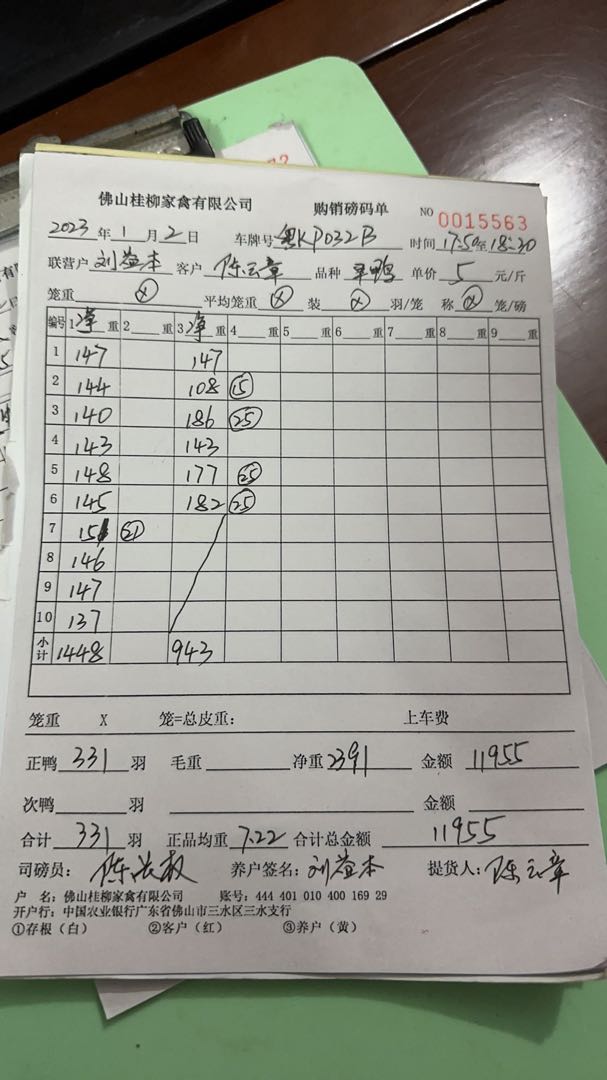 佛山桂柳家禽有限公司 购销磅码单 NO 0015563
2023年1月2日 车牌号 粤KP032B 时间17:50至18:30
联营户 刘益本 客户 陈云章 品种 单价 5 元/斤
笼重 ⓧ 平均笼重 ⓧ 装 ⓧ 羽/笼 称 ⓧ 笼/磅
编号 1净重 2 重 3净重 4 重 5 重 6 重 7 重 8 重 9 重
1 147 147
2 144 108 ⑮
3 140 186 ㉕
4 143 143
5 148 177 ㉕
6 145 182 ㉕
7 151 ㉑
8 146
9 147
10 137
小计 1448 943
笼重 X 笼=总皮重: 上车费
正鸭 331 羽 毛重 净重 2391 金额 11955
次鸭 羽 金额
合计 331 羽 正品均重 7.22 合计总金额 11955
司磅员: 陈 养户签名: 刘益本 提货人: 陈云章
户 名: 佛山桂柳家禽有限公司 账号: 444 401 010 400 169 29
开户行: 中国农业银行广东省佛山市三水区三水支行
①存根(白) ②客户(红) ③养户(黄)